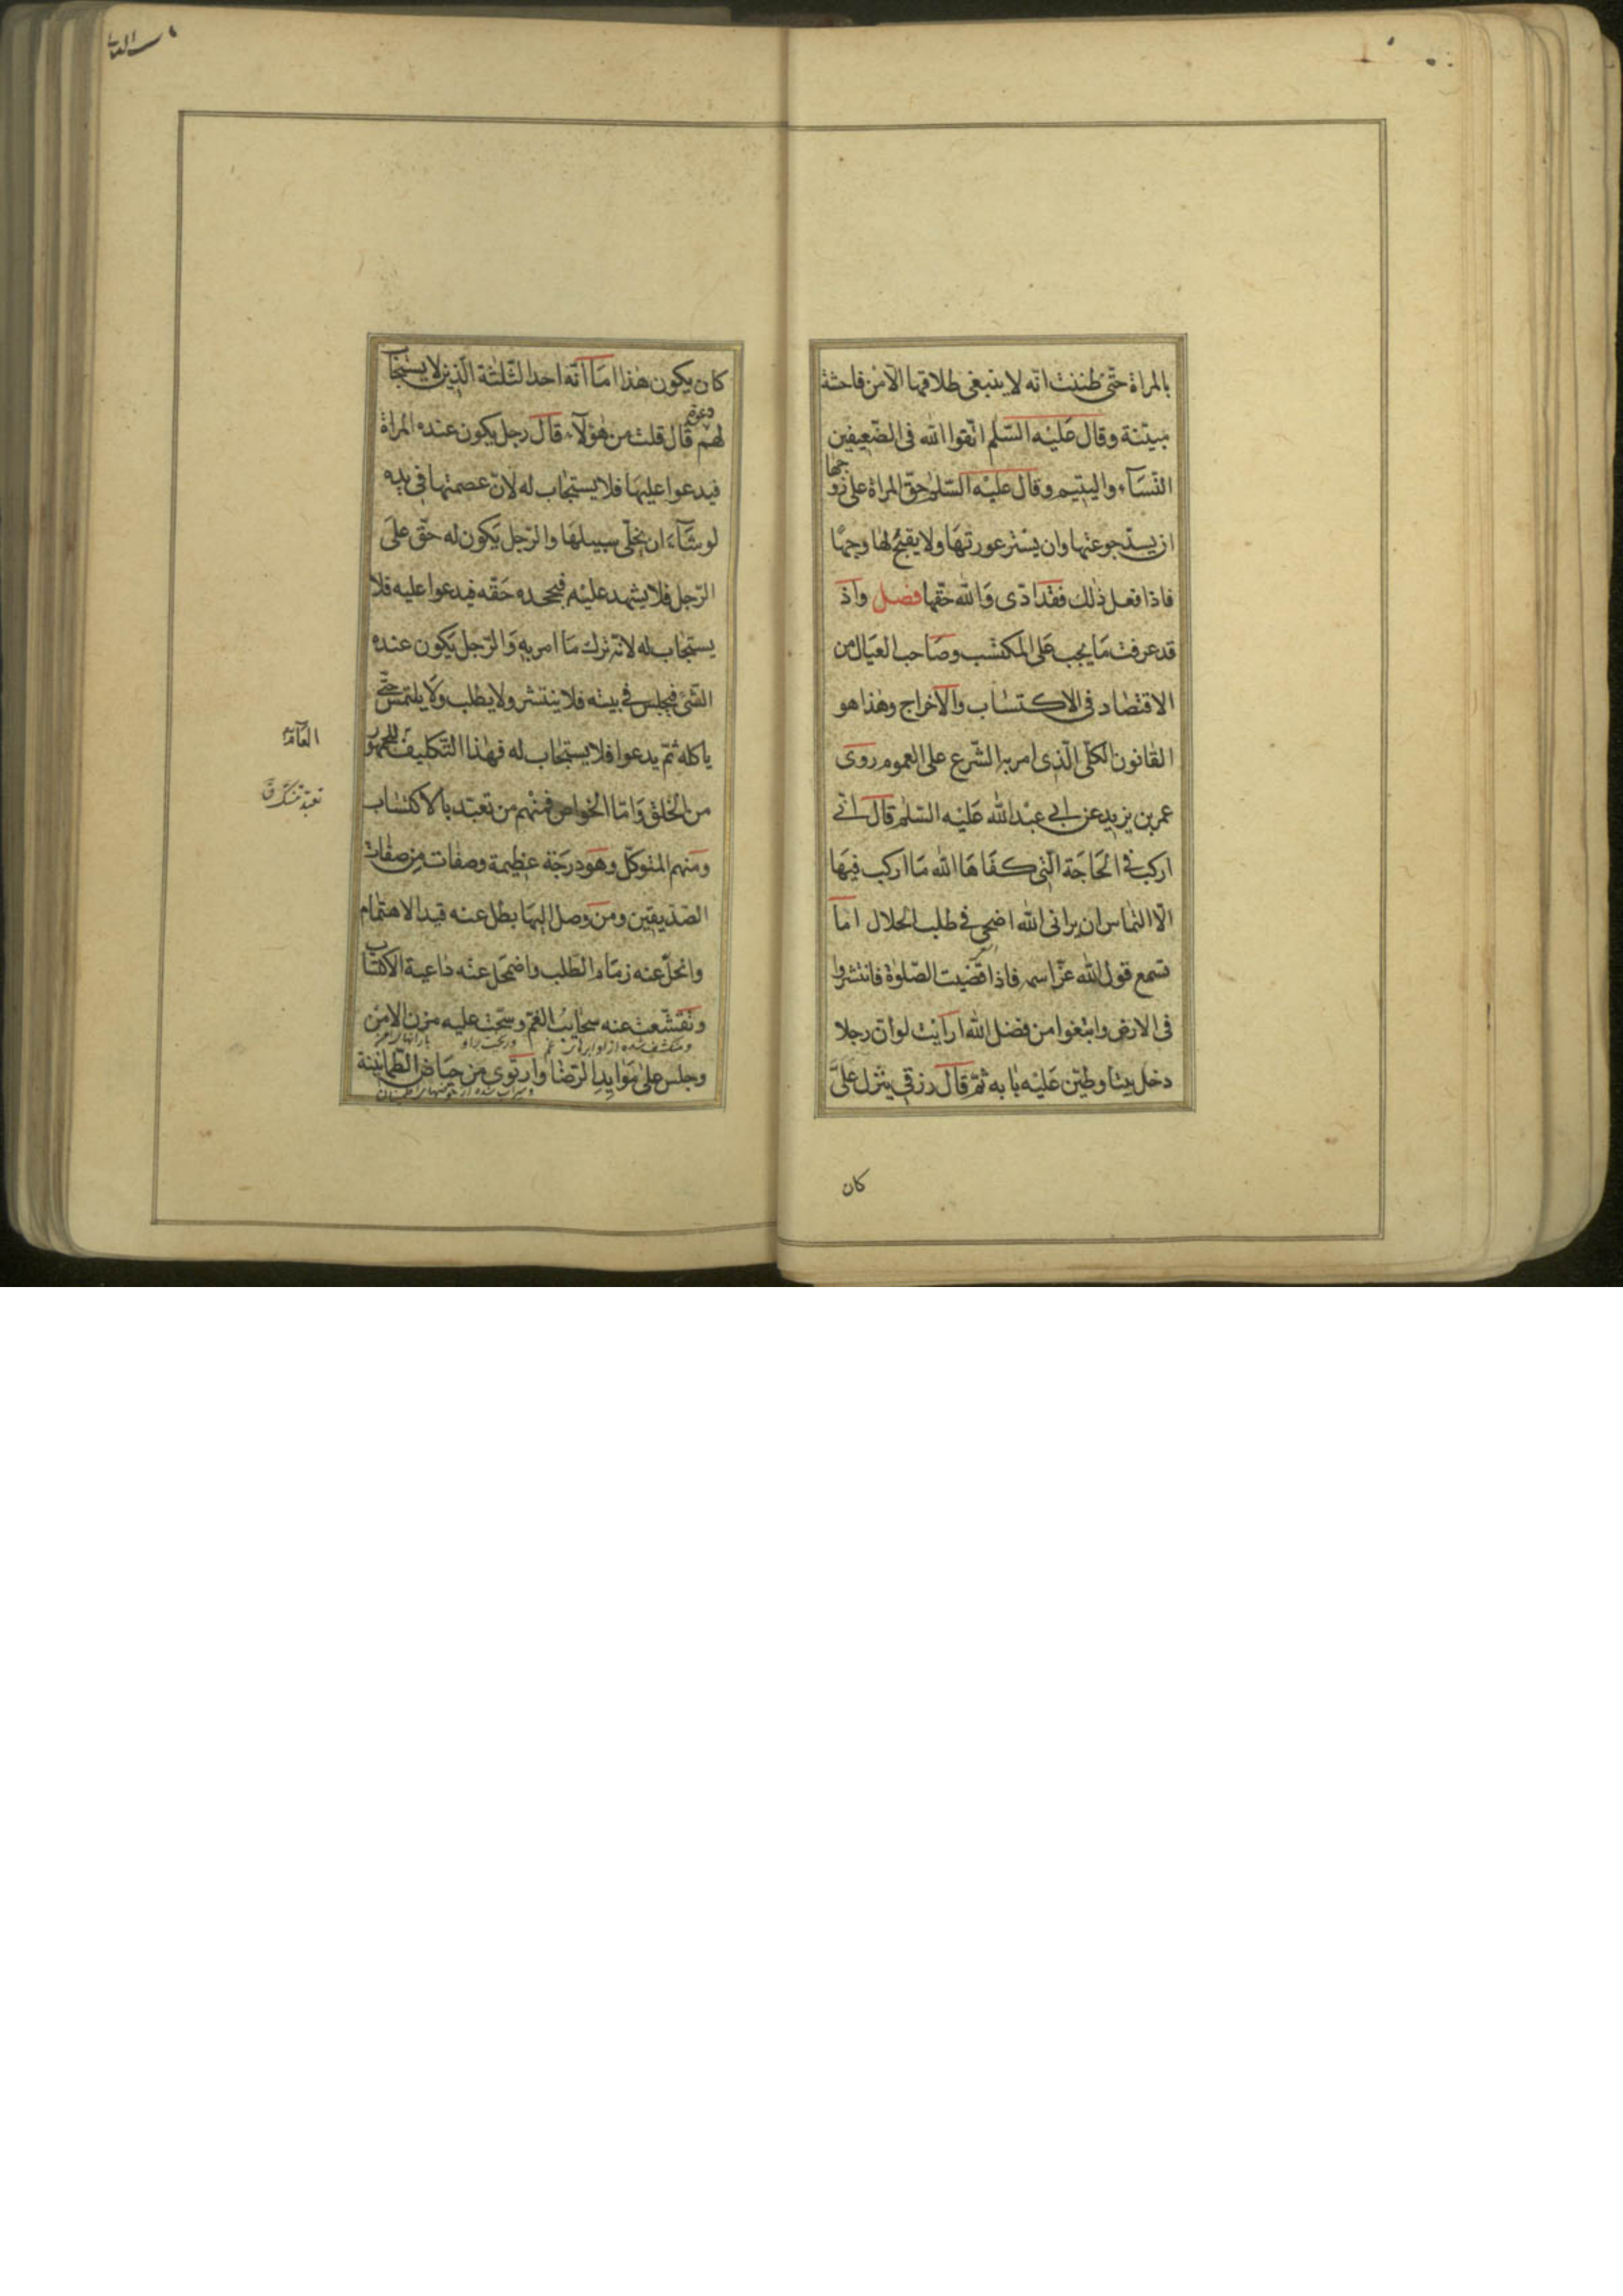 بالمراة حتّى ظننت انّه لا ينبغى طلاقها الّا من فاحشة
مبيّنة وقال عليه السّلم اتّقوا الله فى الضّعيفين
النّساء واليتيم وقال عليه السّلم حقّ المراة على زوجها
ان يسدّ جوعتها وان يستر عورتها ولا يقبّح لها وجهًا
فاذا فعل ذلك فقد ادّى والله حقّها فصل واذ
قد عرفت ما يجب على المكتسب وصاحب العيال من
الاقتصاد فى الاكتساب والاخراج وهذا هو
القانون الكلّى الّذى امر به الشّرع على العموم روى
عمر بن يزيد عن ابى عبد الله عليه السّلم قال انّى
اركب فى الحاجة الّتى كفاها الله ما اركب فيها
الّا التماس ان يرانى الله اضحى فى طلب الحلال اما
تسمع قول الله عزّ اسمه فاذا قضيت الصّلوة فانتشروا
فى الارض وابتغوا من فضل الله ارايت لو انّ رجلا
دخل بيتا وطيّن عليه بابه ثمّ قال رزقى ينزل علىّ
كان
كان يكون هذا اما انّه احد الثّلثة الّذين لا يستجاب
لهم دعوة قال قلت من هؤلاء قال رجل يكون عنده المراة
فيدعوا عليها فلا يستجاب له لانّ عصمتها فى يده
لو شاء ان يخلّى سبيلها والرّجل يكون له حقّ على
الرّجل فلا يشهد عليه فيجحده حقّه فيدعوا عليه فلا
يستجاب له لانّه ترك ما امر به والرّجل يكون عنده
الشّئ فيجلس فى بيته فلا ينتشر ولا يطلب ولا يلتمس حتّى
ياكله ثمّ يدعوا فلا يستجاب له فهذا التّكليف للجمهور
العامّة
من الخلق وامّا الخواص فمنهم من تعبّد بالاكتساب
ومنهم المتوكّل وهو درجة عظيمة وصفات من صفات
الصّدّيقين ومن وصل اليها بطل عنه قيد الاهتمام
وانحلّ عنه زمام الطّلب واضمحلّ عنه داعية الاكتساب
وتقشّعت عنه سحايب الغمّ وسحّت عليه مزن الامن
وجلس على موايد الرّضا وارتوى من حياض الطّمانينة